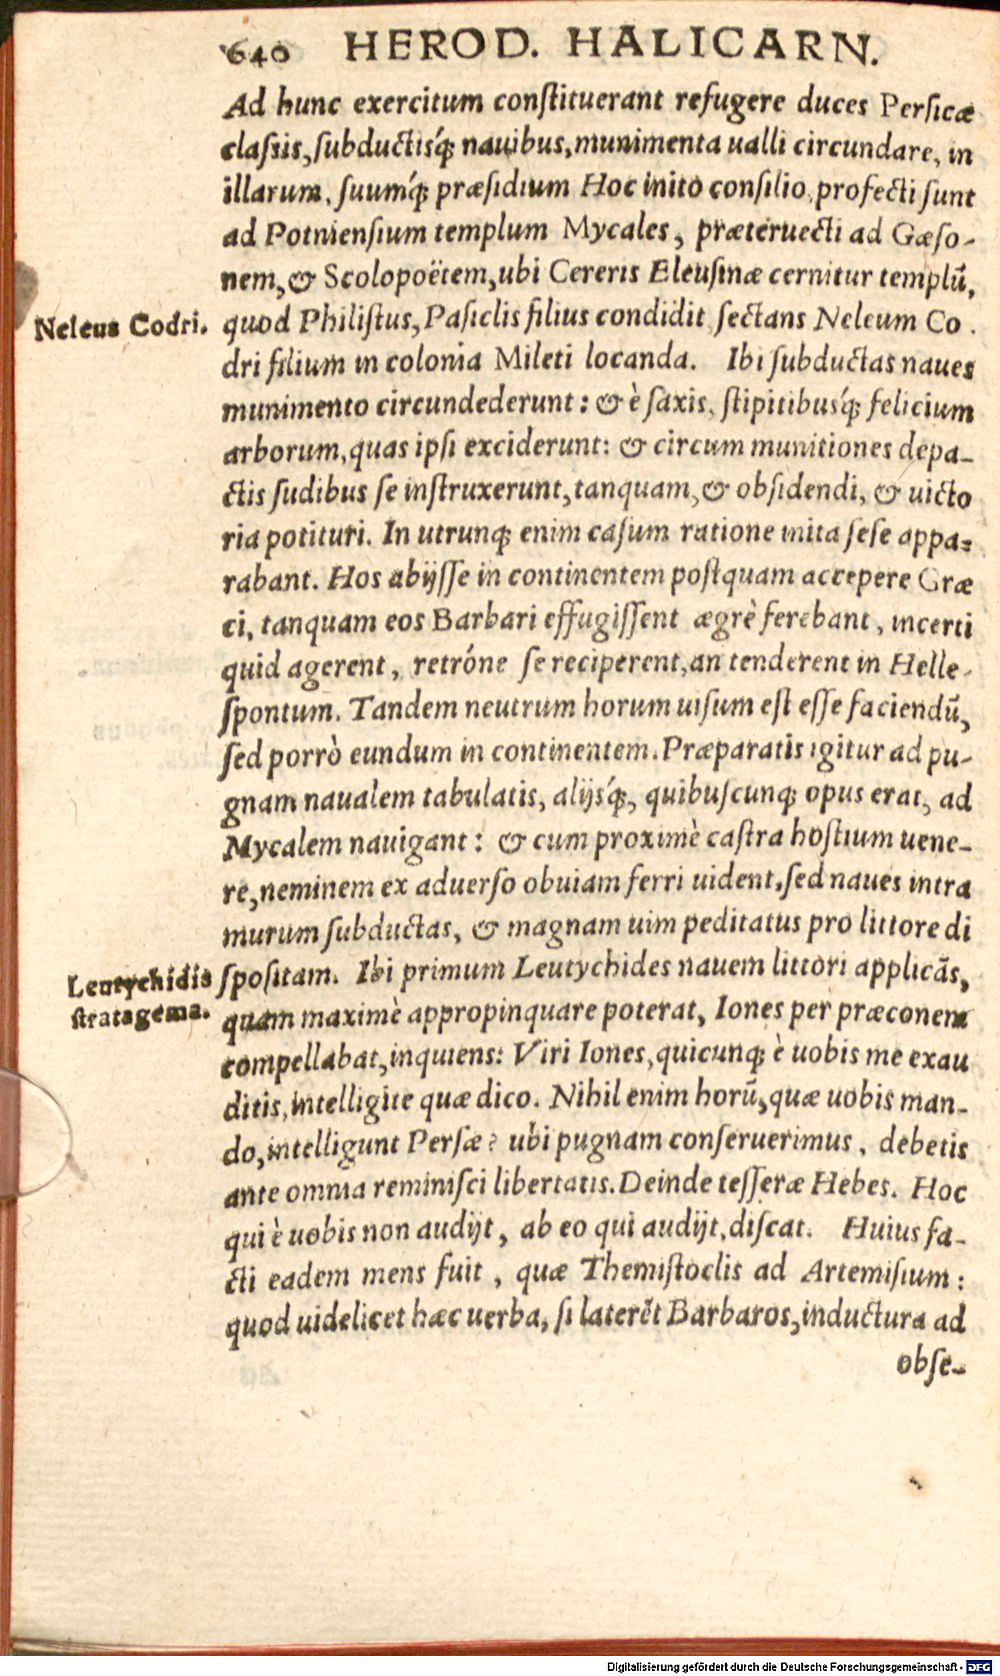 640 HEROD. HALICARN.
Ad hunc exercitum conſtituerant refugere duces Perſicæ
claſsis, ſubductisq́; nauibus, munimenta ualli circundare, in
illarum, ſuumq́; præſidium Hoc inito conſilio, profecti ſunt
ad Potnienſium templum Mycales, præteruecti ad Gæſo-
nem, & Scolopoëtem, ubi Cereris Eleuſinæ cernitur templū,
Neleus Codri. quod Philiſtus, Paſiclis filius condidit ſectans Neleum Co
dri filium in colonia Mileti locanda. Ibi ſubductas naues
munimento circundederunt: & è ſaxis, ſtipitibusq́; felicium
arborum, quas ipſi exciderunt: & circum munitiones depa-
ctis ſudibus ſe inſtruxerunt, tanquam, & obſidendi, & uicto
ria potituri. In utrunq; enim caſum ratione inita ſeſe appa-
rabant. Hos abijſſe in continentem poſtquam accepere Græ
ci, tanquam eos Barbari effugiſſent ægrè ferebant, incerti
quid agerent, retróne ſe reciperent, an tenderent in Helle-
ſpontum. Tandem neutrum horum uiſum eſt eſſe faciendū,
ſed porrò eundum in continentem. Præparatis igitur ad pu-
gnam naualem tabulatis, alijsq́;, quibuſcunq; opus erat, ad
Mycalem nauigant: & cum proximè caſtra hoſtium uene-
re, neminem ex aduerſo obuiam ferri uident, ſed naues intra
murum ſubductas, & magnam uim peditatus pro littore di
Leutychidis ſpoſitam. Ibi primum Leutychides nauem littori applicās,
ſtratagema. quam maximè appropinquare poterat, Iones per præconem
compellabat, inquiens: Viri Iones, quicunq; è uobis me exau
ditis, intelligite quæ dico. Nihil enim horū, quæ uobis man-
do, intelligunt Perſæ? ubi pugnam conſeruerimus, debetis
ante omnia reminiſci libertatis. Deinde teſſeræ Hebes. Hoc
qui è uobis non audijt, ab eo qui audijt, diſcat. Huius fa-
cti eadem mens fuit, quæ Themiſtoclis ad Artemiſium:
quod uidelicet hæc uerba, ſi laterēt Barbaros, inductura ad
obſe-
Digitalisierung gefördert durch die Deutsche Forschungsgemeinschaft - DFG